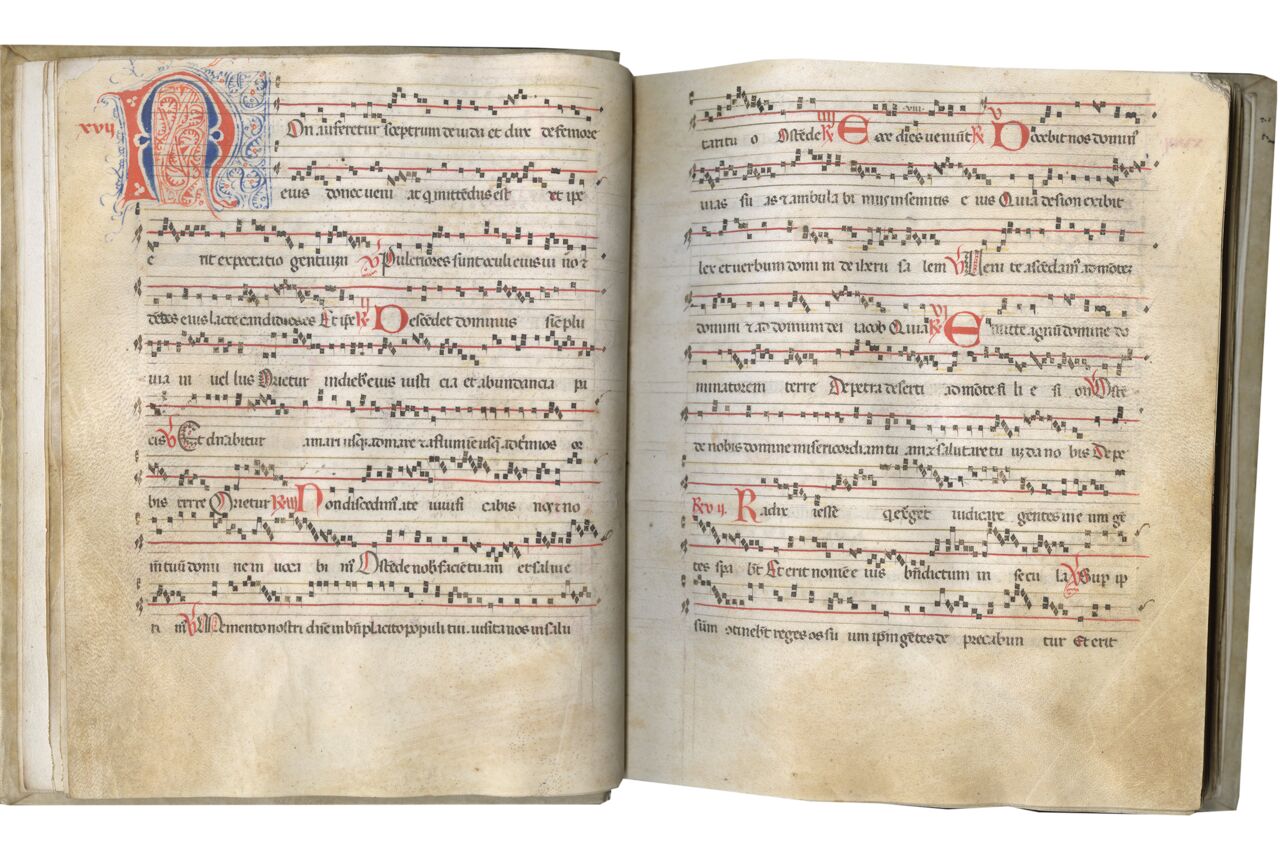 xvij
Non auferetur sceptrum de iuda et dux de femore
eius donec veni at q mittēdus est et ipe
e rit expectatio gentium ℣ Pulcriores sunt oculi eius ui no ⁊
dētes eius lacte candidiores Et ipe ℟ ij Descēdet dominus sic plu
uia in uel lus Orietur in dieb eius iusti cia et abundancia pa
cis ℣ Et dn̄abitur a mari usq ad mare ⁊ a flumīe usq ad t̄minos or
bis terre Orietur ℟ iij Non discedim̄ a te uiuifi cabis nos ⁊ no
m̄ tuū domi ne in uoca bi m̄ Ostēde nob faciē tuam et salui e
ri m̄ ℣ Memento nostri dn̄e in bn̄placito populi tui uisita nos in salu
tari tu o Ostēde ℟ iiij Ecce dies ueniūt ℟ v Docebit nos domin̄
uias su as ⁊ ambula bi mus in semitis e ius Quia de sion exibit
lex et uerbum domi ni de iheru sa lem ℣ Ueni te ascēdam̄ ad mōtez
domini ⁊ ad domum dei iacob Quia ℟ vj Emitte agnū domine do
minatorem terre De petra deserti ad mōte fi li e si on ℣ Ostē
de nobis domine misericordiam tu am ⁊ salutare tu um da no bis De pe
℟ vij. Radix iesse q exurget iudicare gentes in e um gē
tes spa būt Et erit nomē e ius bn̄dictum in secu la ℣ Sup ip
sum ↄtinebt reges os su um ip̄m gētes de precabun tur Et erit